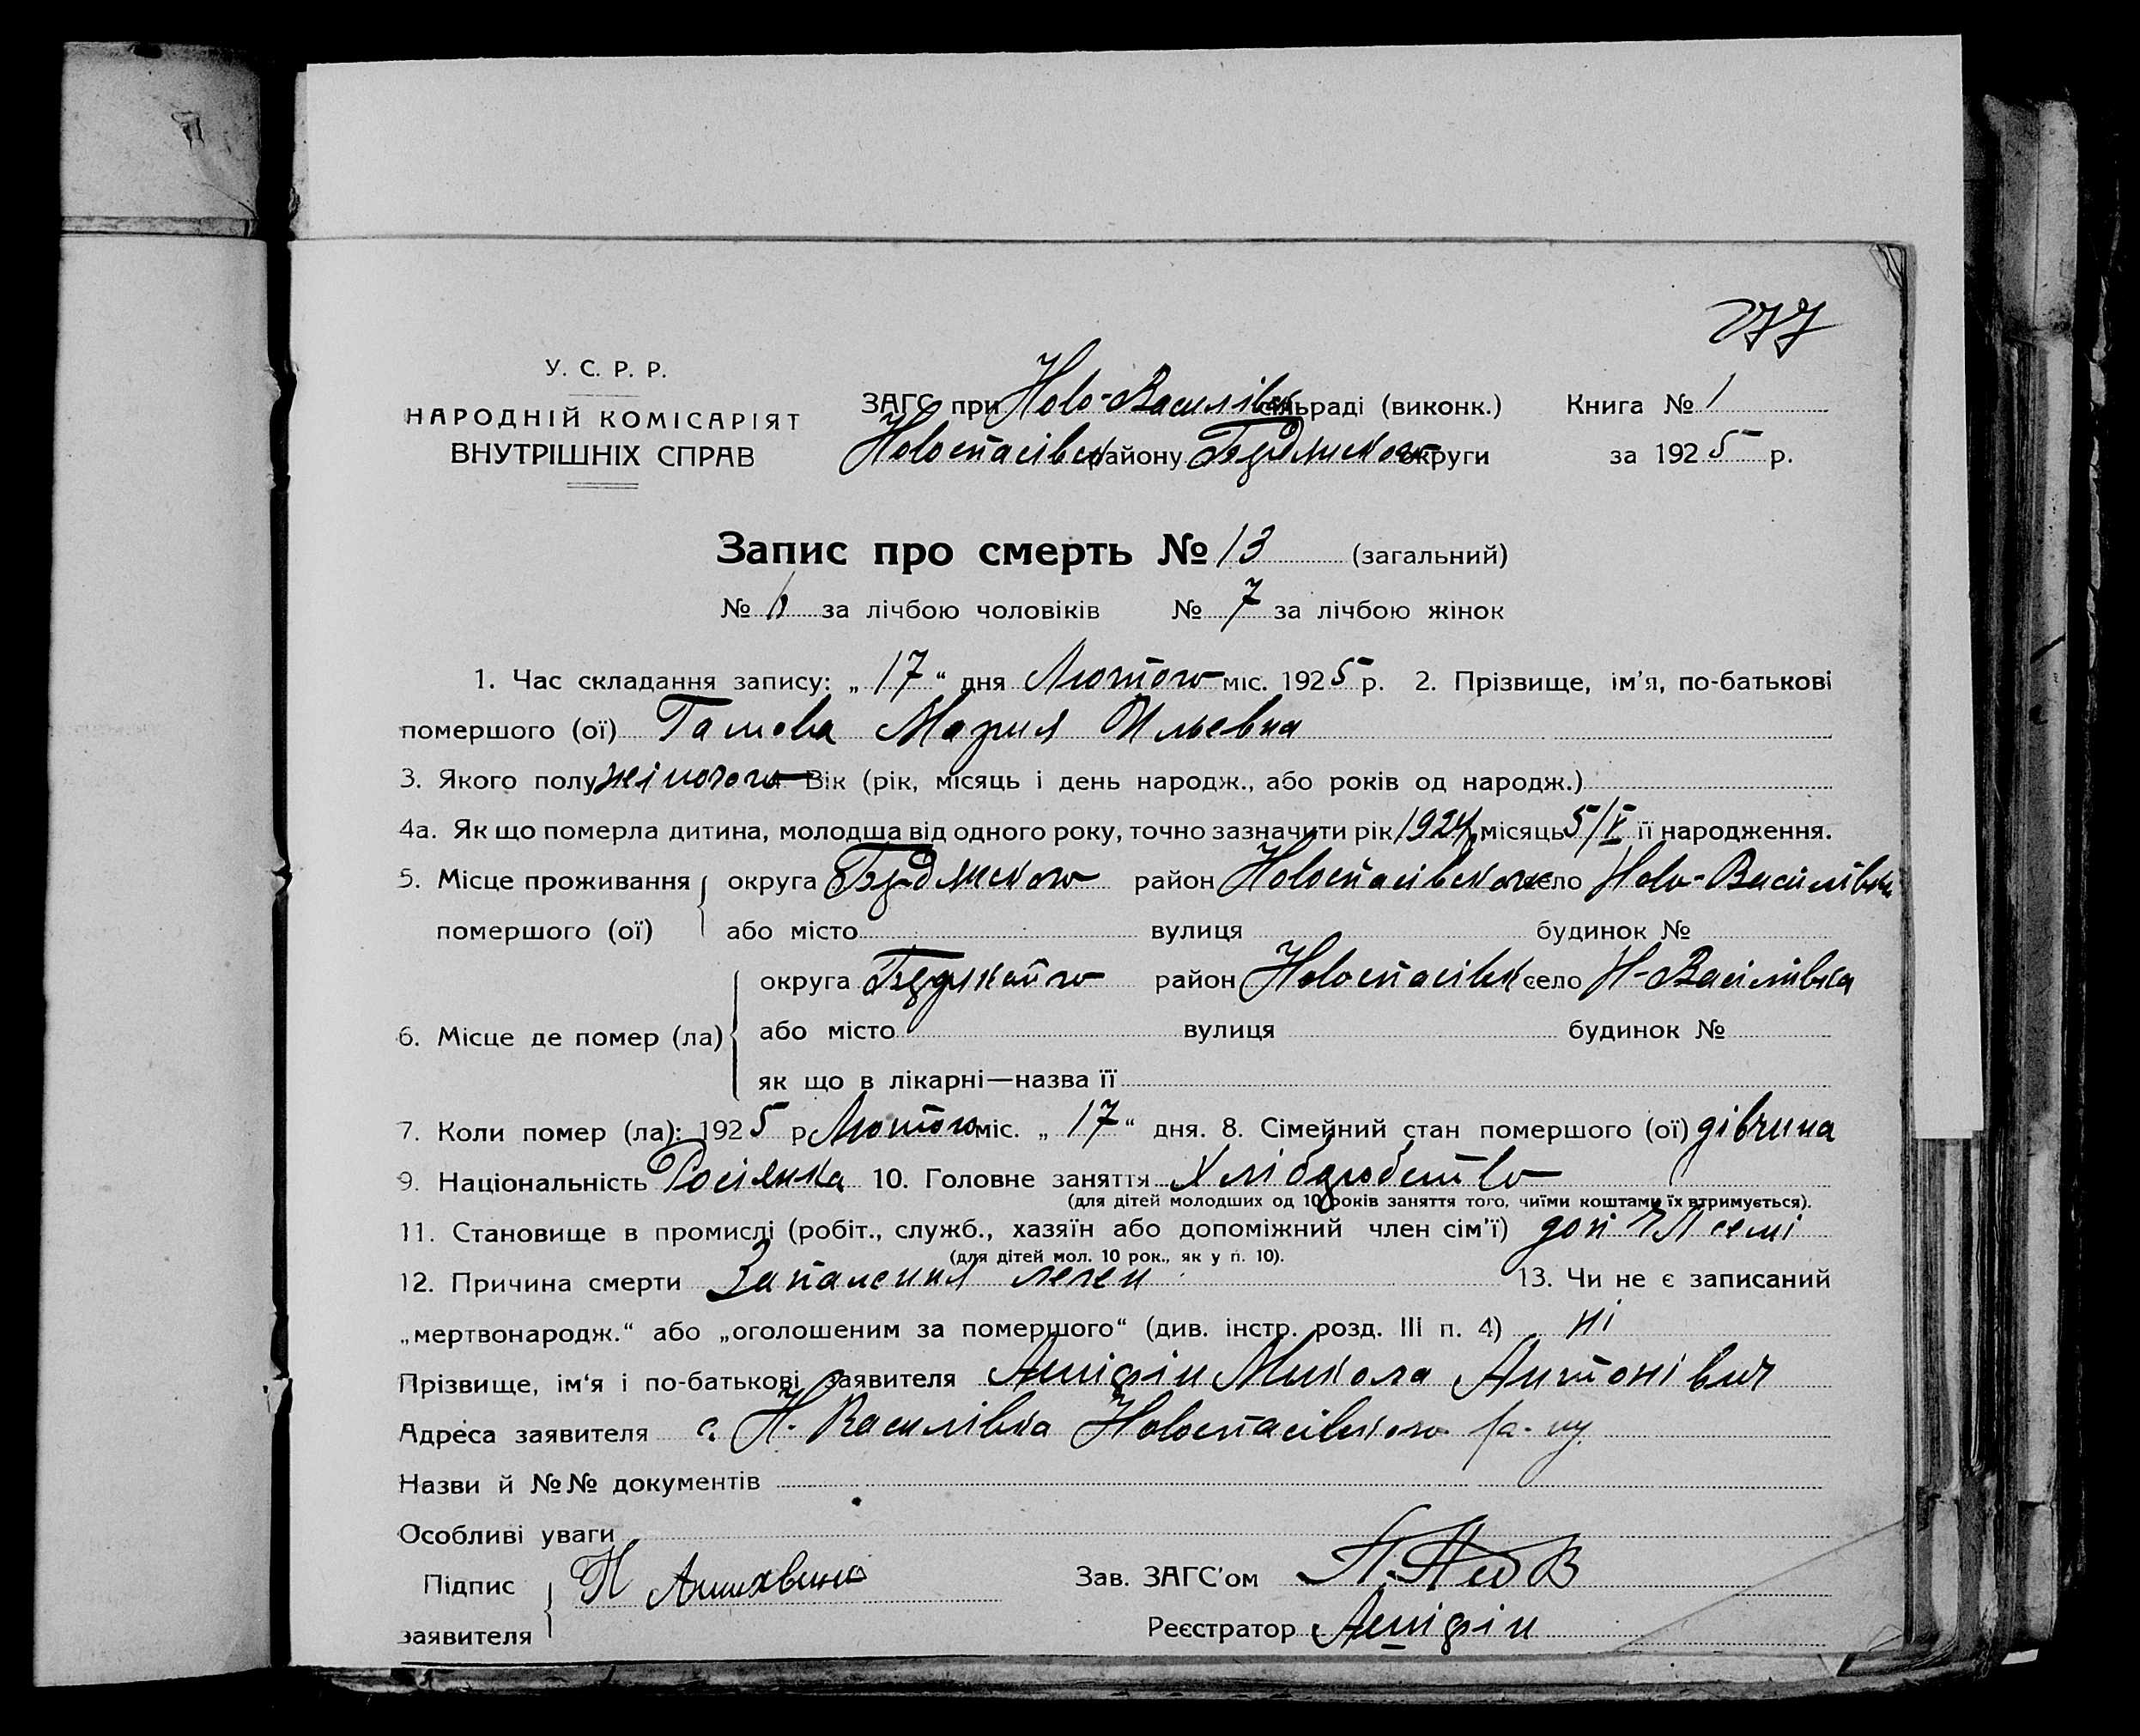 277
У. С. Р. Р.
НАРОДНІЙ КОМІСАРІЯТ
ВНУТРІШНІХ СПРАВ
ЗАГС при Ново-Василівск сільраді (виконк.) Книга № 1
Новоспасівськ району Бердянського округи за 1925 р.
Запис про смерть № 13 (загальний)
№ за лічбою чоловіків № 7 за лічбою жінок
1. Час складання запису: „17“ дня Лютого міс. 1925 р. 2. Прізвище, ім'я, по-батькові
помершого (ої) Гамова Мария Ильевна
3. Якого полу жіночого Вік (рік, місяць і день народж., або років од народж.)
4а. Як що померла дитина, молодша від одного року, точно зазначити рік 1924 місяць 5/V її народження.
5. Місце проживання округа Бердянського район Новоспасівського село Ново-Василівка
помершого (ої) або місто вулиця будинок №
округа район Новоспасівськ село Н-Василівка
6. Місце де помер (ла) або місто вулиця будинок №
як що в лікарні—назва її
7. Коли помер (ла): 1925 р Лютого міс. „17“ дня. 8. Сімейний стан помершого (ої) дівчина
9. Національність Росіянка 10. Головне заняття Хліборобство
(для дітей молодших од 10 років заняття того, чиїми коштами їх втримується).
11. Становище в промислі (робіт., служб., хазяїн або допоміжний член сім'ї) доп Чл семі
(для дітей мол. 10 рок., як у п. 10).
12. Причина смерти Запалення леген 13. Чи не є записаний
„мертвонародж.“ або „оголошеним за помершого“ (див. інстр. розд. III п. 4) ні
Прізвище, ім'я і по-батькові заявителя Анціфін Микола Антонівич
Адреса заявителя с. Н. Василівка Новоспасівського ра-ну
Назви й №№ документів
Особливі уваги
Підпис
заявителя
Зав. ЗАГС'ом
Реєстратор